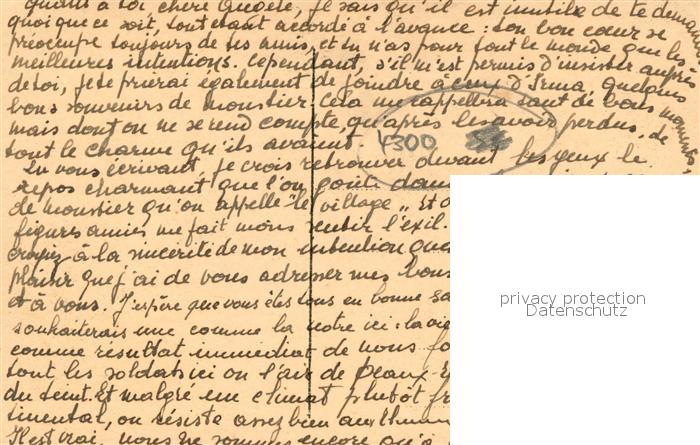 quant à toi chère Quoète, je sais qu'il est inutile de te demander
quoique ce soit, tout étant accordé à l'avance : ton bon cœur se
préoccupe toujours de tes amis, et tu n'as pour tout le monde que les
meilleures intentions. Cependant, s'il m'est permis d'insister auprès
de toi, je te prierai également de joindre à ceux d'Irma, quelques
bons souvenirs de moustier. Cela me rappellera tant de bons moments
mais dont on ne se rend compte, qu'après les avoir perdus, de
tout le charme qu'ils avaient.
4300
En vous écrivant, je crois retrouver devant les yeux le
repos charmant que l'on goûte dans
de moustier qu'on appelle "le village". Et
figures amies me fait moins sentir l'exil.
croyez à la sincérité de mon intention
plaisir que j'ai de vous adresser mes bons
et à vous. J'espère que vous êtes tous en bonne
souhaiterais une comme la notre ici : la vie
comme résultat immédiat de nous
tout les soldats ici on l'air de
du teint. Et malgré un climat plutôt
on résiste assez bien aux
Il est vrai, nous ne sommes encore qu'à
privacy protection
Datenschutz